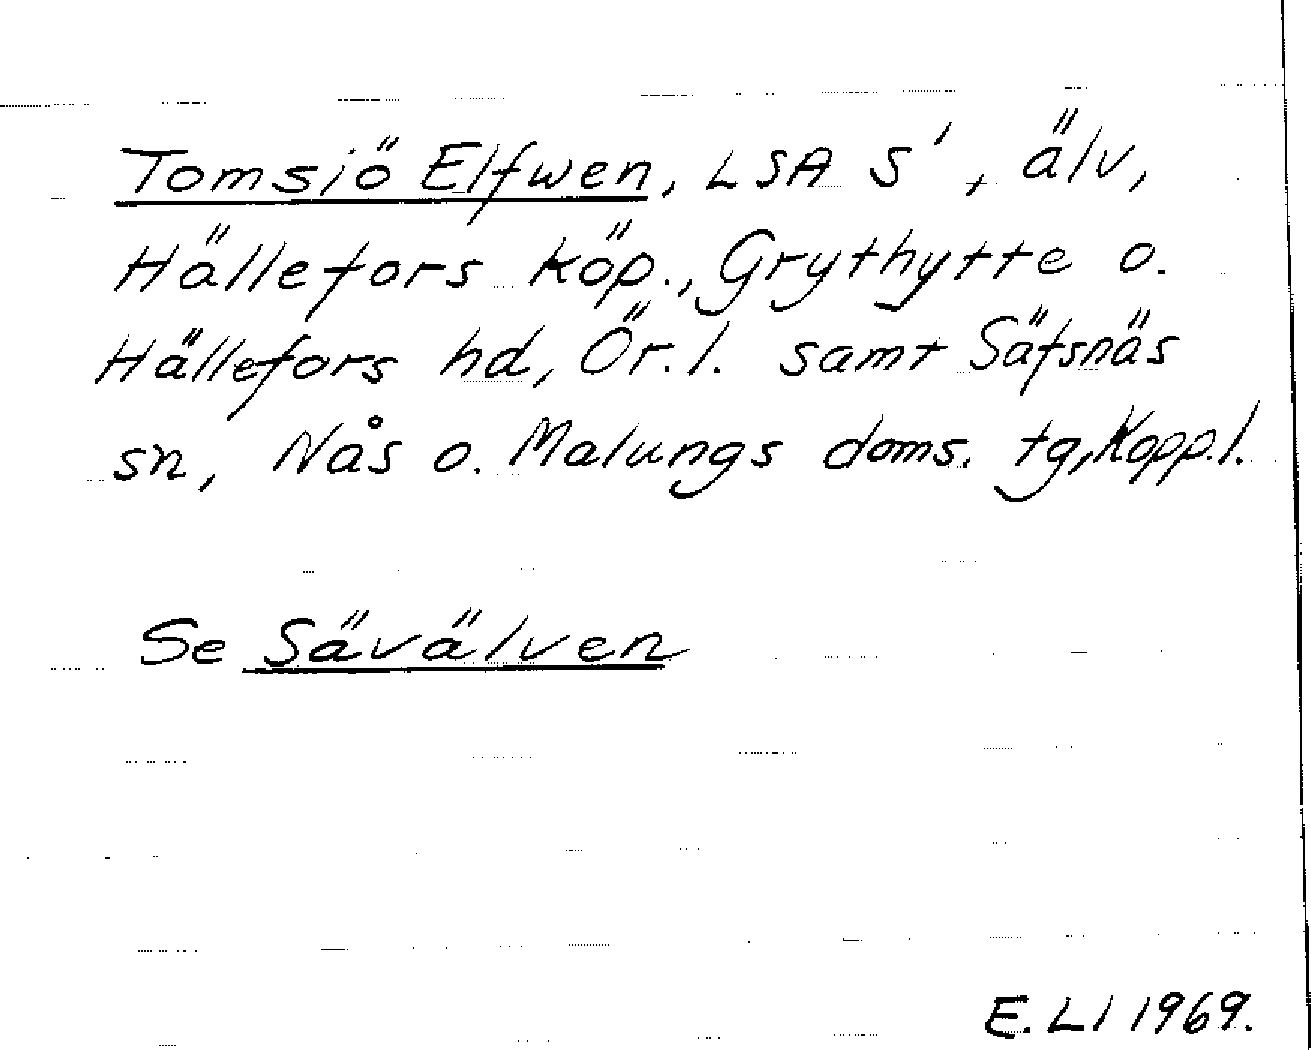 Tomsiö Elfwen, LSA S', älv,
Hällefors köp., Grythytte o.
Hällefors hd, Ör. l. samt Säfsnäs
sn, Nås o. Malungs doms. tg, Kopp. l.
Se Sävälven
E. LI 1969.